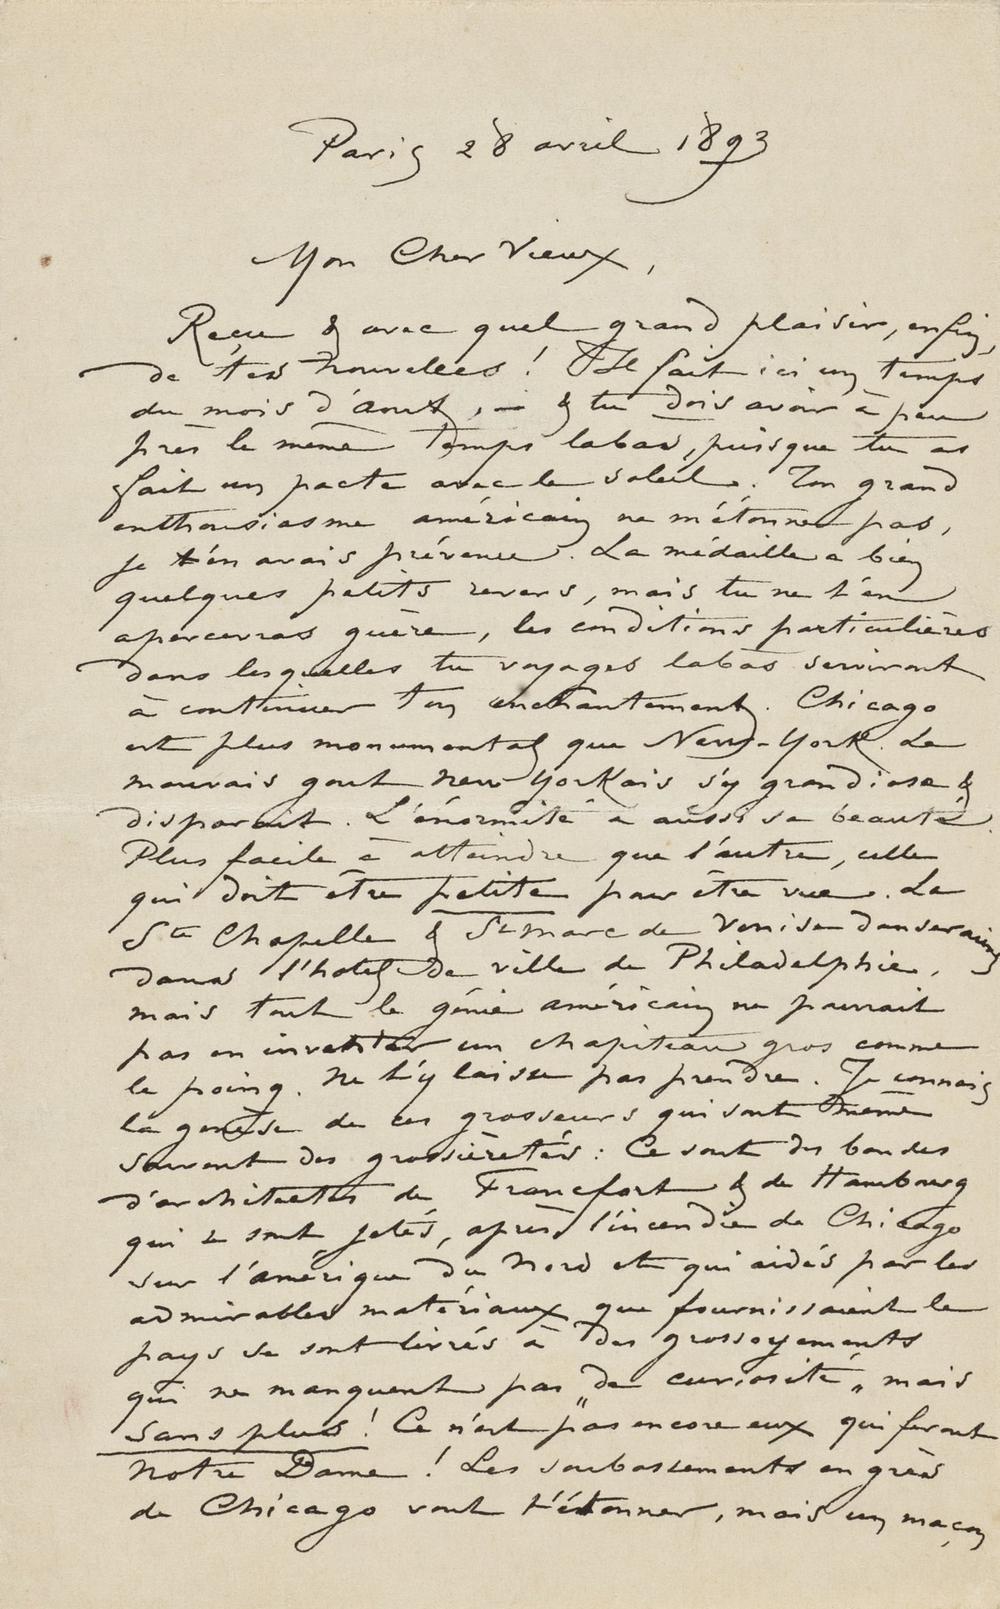 Paris 28 avril 1893
Mon Cher Vieux,
Reçu & avec quel grand plaisir, enfin,
de tes nouvelles ! Il fait ici un temps
du mois d'aout, — & tu dois avoir à peu
près le même temps labas, puisque tu as
fait un pacte avec le soleil. Ton grand
enthousiasme américain ne m'étonne pas,
je t'en avais prévenu. La médaille a bien
quelques petits revers, mais tu ne t'en
apercevras guère, les conditions particulières
dans lesquelles tu voyages labas serviront
à continuer ton enchantement. Chicago
est plus monumental que New-York. Le
mauvais gout new-yorkais s'y grandiose &
disparait. L'énormité a aussi sa beauté.
Plus facile à atteindre que l'autre, celle
qui doit être petite pour être vue. La
Ste Chapelle & St Marc de Venise danseraient
dans l'hotel de ville de Philadelphie,
mais tout le génie américain ne pourrait
pas en inventer un chapiteau gros comme
le poing. Ne t'y laisse pas prendre. Je connais
la genèse de ces grosseurs qui sont même
souvent des grossièretés : Ce sont des bandes
d'architectes de Francfort & de Hambourg
qui se sont jetés, après l'incendie de Chicago
sur l'amérique du Nord et qui aidés par les
admirables matériaux que fournissaient le
pays se sont livrés à des grossoyements
qui ne manquent pas „de curiosité„ mais
sans plus ! Ce n'est pas encore eux qui feront
Notre Dame ! Les soubassements en grès
de Chicago vont t'étonner, mais un maçon